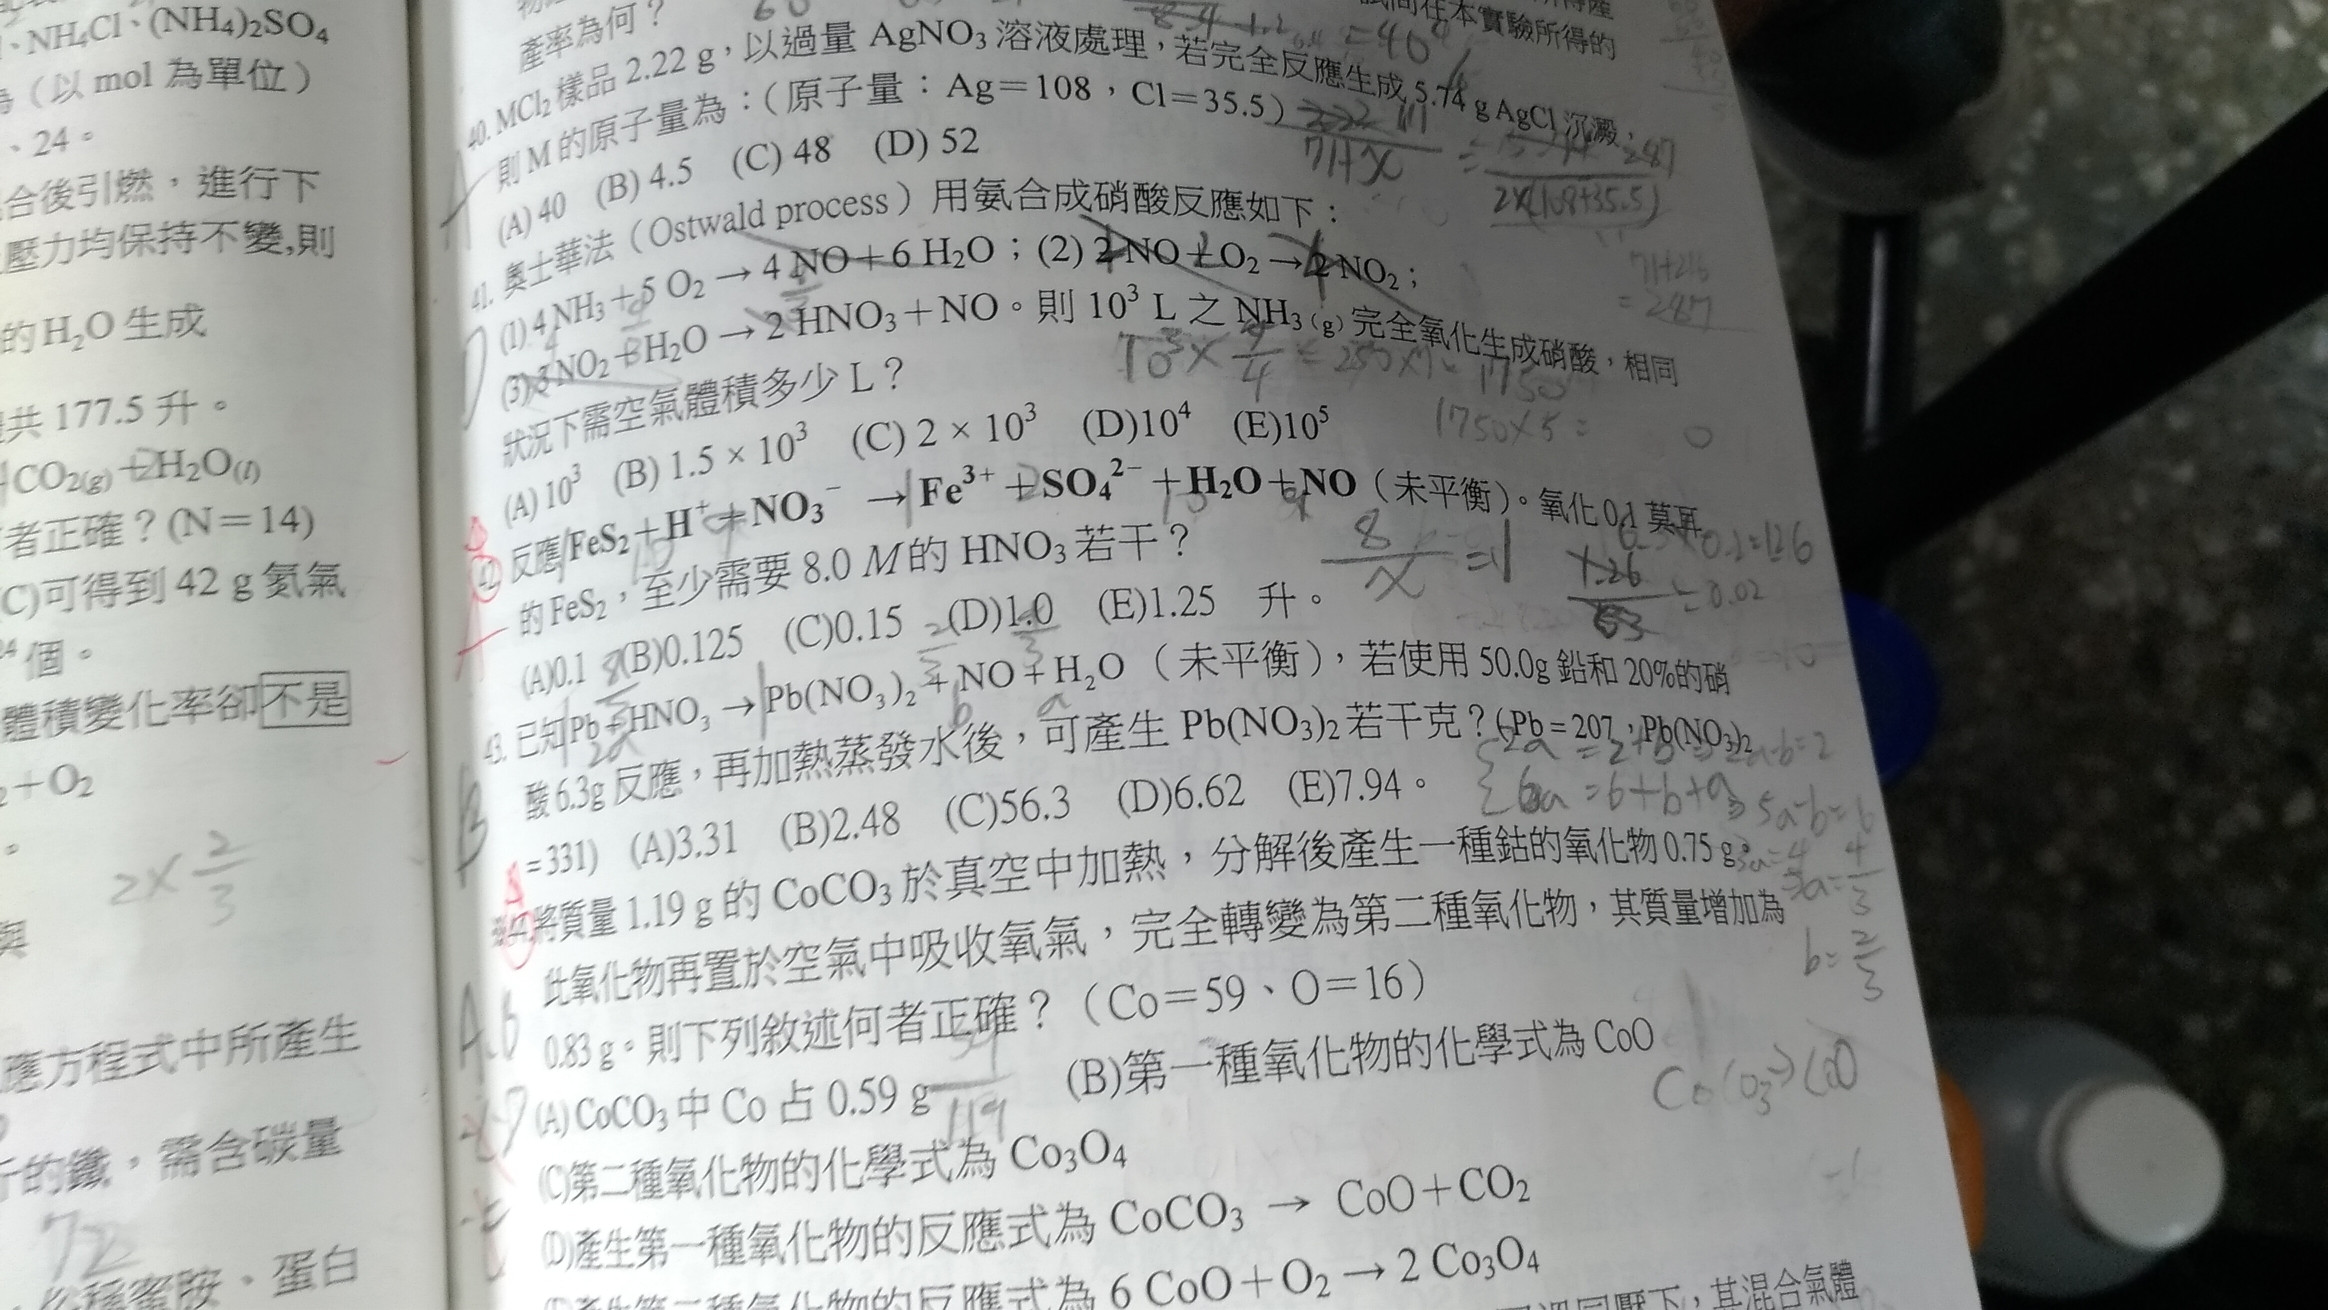 、NH₄Cl、(NH₄)₂SO₄
（以 mol 為單位）
、24。
合後引燃，進行下
壓力均保持不變,則
的 H₂O 生成
共 177.5 升。
CO₂(g)+2H₂O(l)
者正確？(N＝14)
(C)可得到 42 g 氮氣
個。
體積變化率卻不是
+O₂
2×2/3
與
應方程式中所產生
的鐵，需含碳量
72
、蛋白
產率為何？
試問在本實驗所得的
40. MCl₂ 樣品 2.22 g，以過量 AgNO₃ 溶液處理，若完全反應生成 5.74 g AgCl 沉澱，
則 M 的原子量為：（原子量：Ag＝108，Cl＝35.5）
(A) 40 (B) 4.5 (C) 48 (D) 52
71+x
2×(108+35.5)
71+216
=287
41. 奧士華法（Ostwald process）用氨合成硝酸反應如下：
(1) 4 NH₃＋5 O₂ → 4 NO＋6 H₂O；(2) 2 NO＋O₂ → 2 NO₂；
(3) 3 NO₂＋H₂O → 2 HNO₃＋NO。則 10³ L 之 NH₃(g) 完全氧化生成硝酸，相同
狀況下需空氣體積多少 L？
1750
1750×5=
(A) 10³ (B) 1.5 × 10³ (C) 2 × 10³ (D)10⁴ (E)10⁵
42. 反應 FeS₂＋H⁺＋NO₃⁻ → Fe³⁺＋SO₄²⁻＋H₂O＋NO（未平衡）。氧化 0.1 莫耳
的 FeS₂，至少需要 8.0 M 的 HNO₃ 若干？
8/x=1
1.26/63=0.02
(A)0.1 (B)0.125 (C)0.15 (D)1.0 (E)1.25 升。
43. 已知Pb＋HNO₃ → Pb(NO₃)₂＋NO＋H₂O（未平衡），若使用 50.0g 鉛和 20%的硝
酸 6.3g 反應，再加熱蒸發水後，可產生 Pb(NO₃)₂ 若干克？(Pb＝207，Pb(NO₃)₂
＝331) (A)3.31 (B)2.48 (C)56.3 (D)6.62 (E)7.94。
2a=2+b
6a=6+b+a
5a-b=6
b=2/3
44. 將質量 1.19 g 的 CoCO₃ 於真空中加熱，分解後產生一種鈷的氧化物 0.75 g。
此氧化物再置於空氣中吸收氧氣，完全轉變為第二種氧化物，其質量增加為
0.83 g。則下列敘述何者正確？（Co＝59、O＝16）
(A) CoCO₃ 中 Co 占 0.59 g (B)第一種氧化物的化學式為 CoO
59/119
(C)第二種氧化物的化學式為 Co₃O₄
(D)產生第一種氧化物的反應式為 CoCO₃ → CoO＋CO₂
(E)產生第二種氧化物的反應式為 6 CoO＋O₂ → 2 Co₃O₄
同壓下，其混合氣體